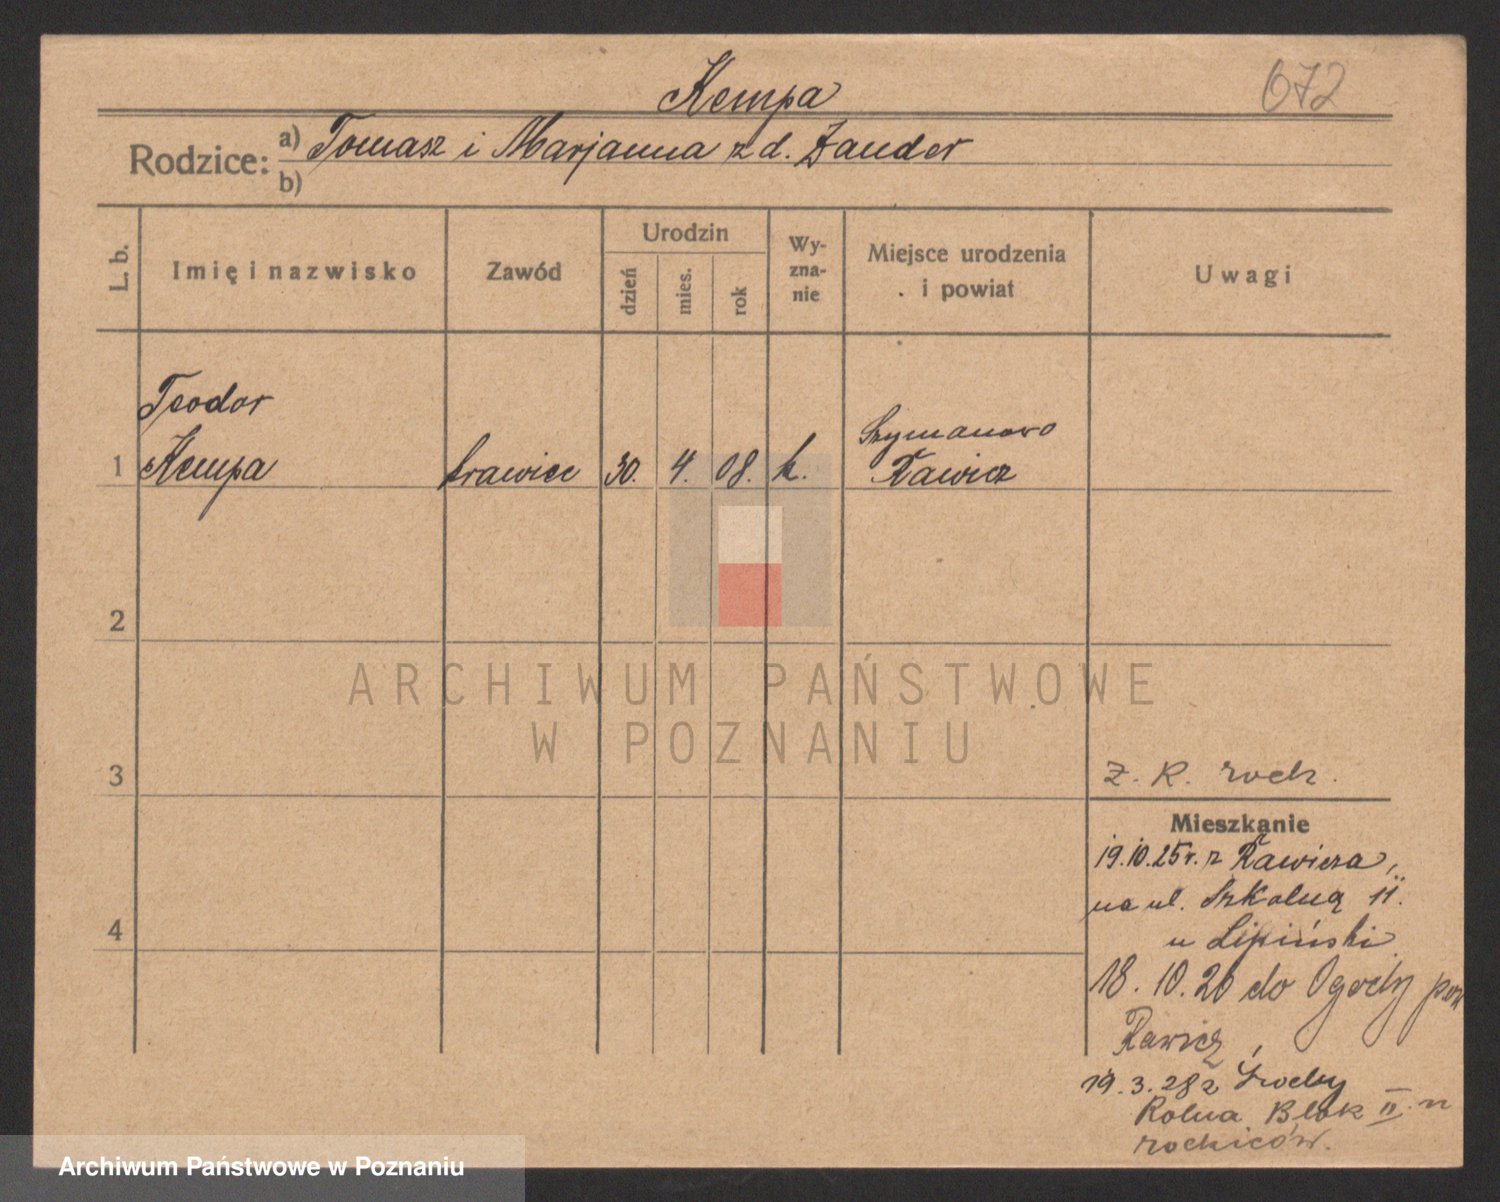 Kempa
672
Rodzice: a) Tomasz i Marjanna z d. Zander
b)
L. b.
Imię i nazwisko
Zawód
Urodzin
dzień
mies.
rok
Wy-
zna-
nie
Miejsce urodzenia
i powiat
Uwagi
Teodor
1 Kempa krawiec 30. 4. 08. k. Szymanowo
Rawicz
2
ARCHIWUM PAŃSTWOWE
W POZNANIU
3
Z. K.
Mieszkanie
19.10.25 r. z Rawicza,
na ul. Szkolną 11.
u Lipiński
4
18. 10. 26 do pow
Rawicz
19. 3. 28 z Środy
Rolna Blok II
Archiwum Państwowe w Poznaniu